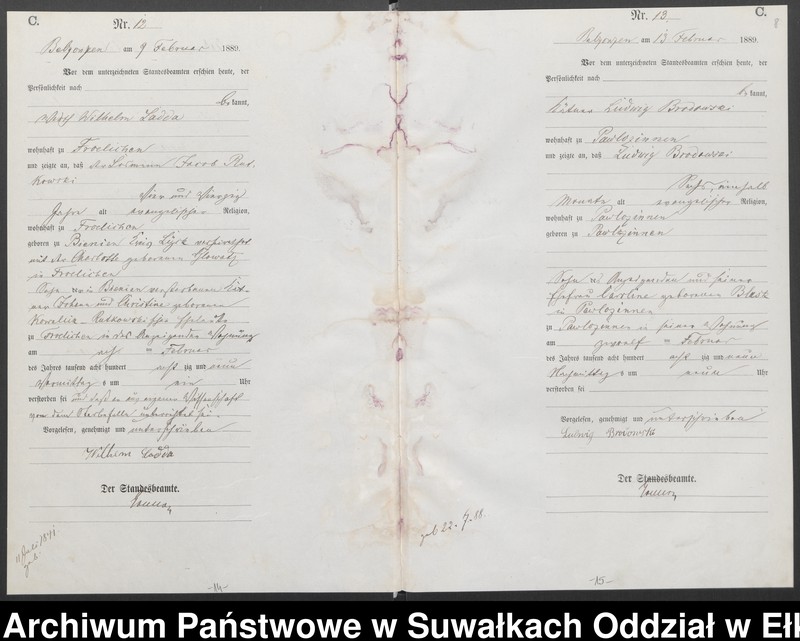 C.
Nr. 12
am 9 Februar 1889.
Vor dem unterzeichneten Standesbeamten erschien heute, der
Persönlichkeit nach
be kannt,
Wilhelm Ladda
wohnhaft zu Froelichen
und zeigte an, daß der Jacob Rat-
kowski
Vier und Vierzig
Jahre alt evangelischer Religion,
wohnhaft zu Froelichen
geboren zu Bienien Kreis Lyck verheirathet
mit der Charlotte geborenen Glowatz
in Froelichen
Sohn verstorbenen Kät-
ner Johann und Christine geborenen
Kowallik - Ratkowski
zu Froelichen in des Anzeigenden Wohnung
am acht Februar
des Jahres tausend acht hundert acht zig und neun
Vormittag s um ein Uhr
verstorben sei und daß er aus eigener Wissenschaft
von dem Sterbefalle unterrichtet sei.
Vorgelesen, genehmigt und unterschrieben
Wilhelm Ladda
Der Standesbeamte.
-14-
Nr. 13.
C.
8
am 13 Februar 1889.
Vor dem unterzeichneten Standesbeamten erschien heute, der
Persönlichkeit nach
be kannt,
Kätner Ludwig Brodowski
wohnhaft zu Pawlozinnen
und zeigte an, daß Ludwig Brodowski
Sechs, einhalb
Monate alt evangelischer Religion,
wohnhaft zu Pawlozinnen
geboren zu Pawlozinnen
Sohn des Anzeigenden und seiner
Ehefrau Caroline geborenen
in Pawlozinnen
zu Pawlozinnen in seiner Wohnung
am zwoelf Februar
des Jahres tausend acht hundert acht zig und neun
Nachmittag s um neun Uhr
verstorben sei
Vorgelesen, genehmigt und unterschrieben
Ludwig Brodowski
Der Standesbeamte.
geb 22. 7. 88.
-15-
Archiwum Państwowe w Suwałkach Oddział w Eł